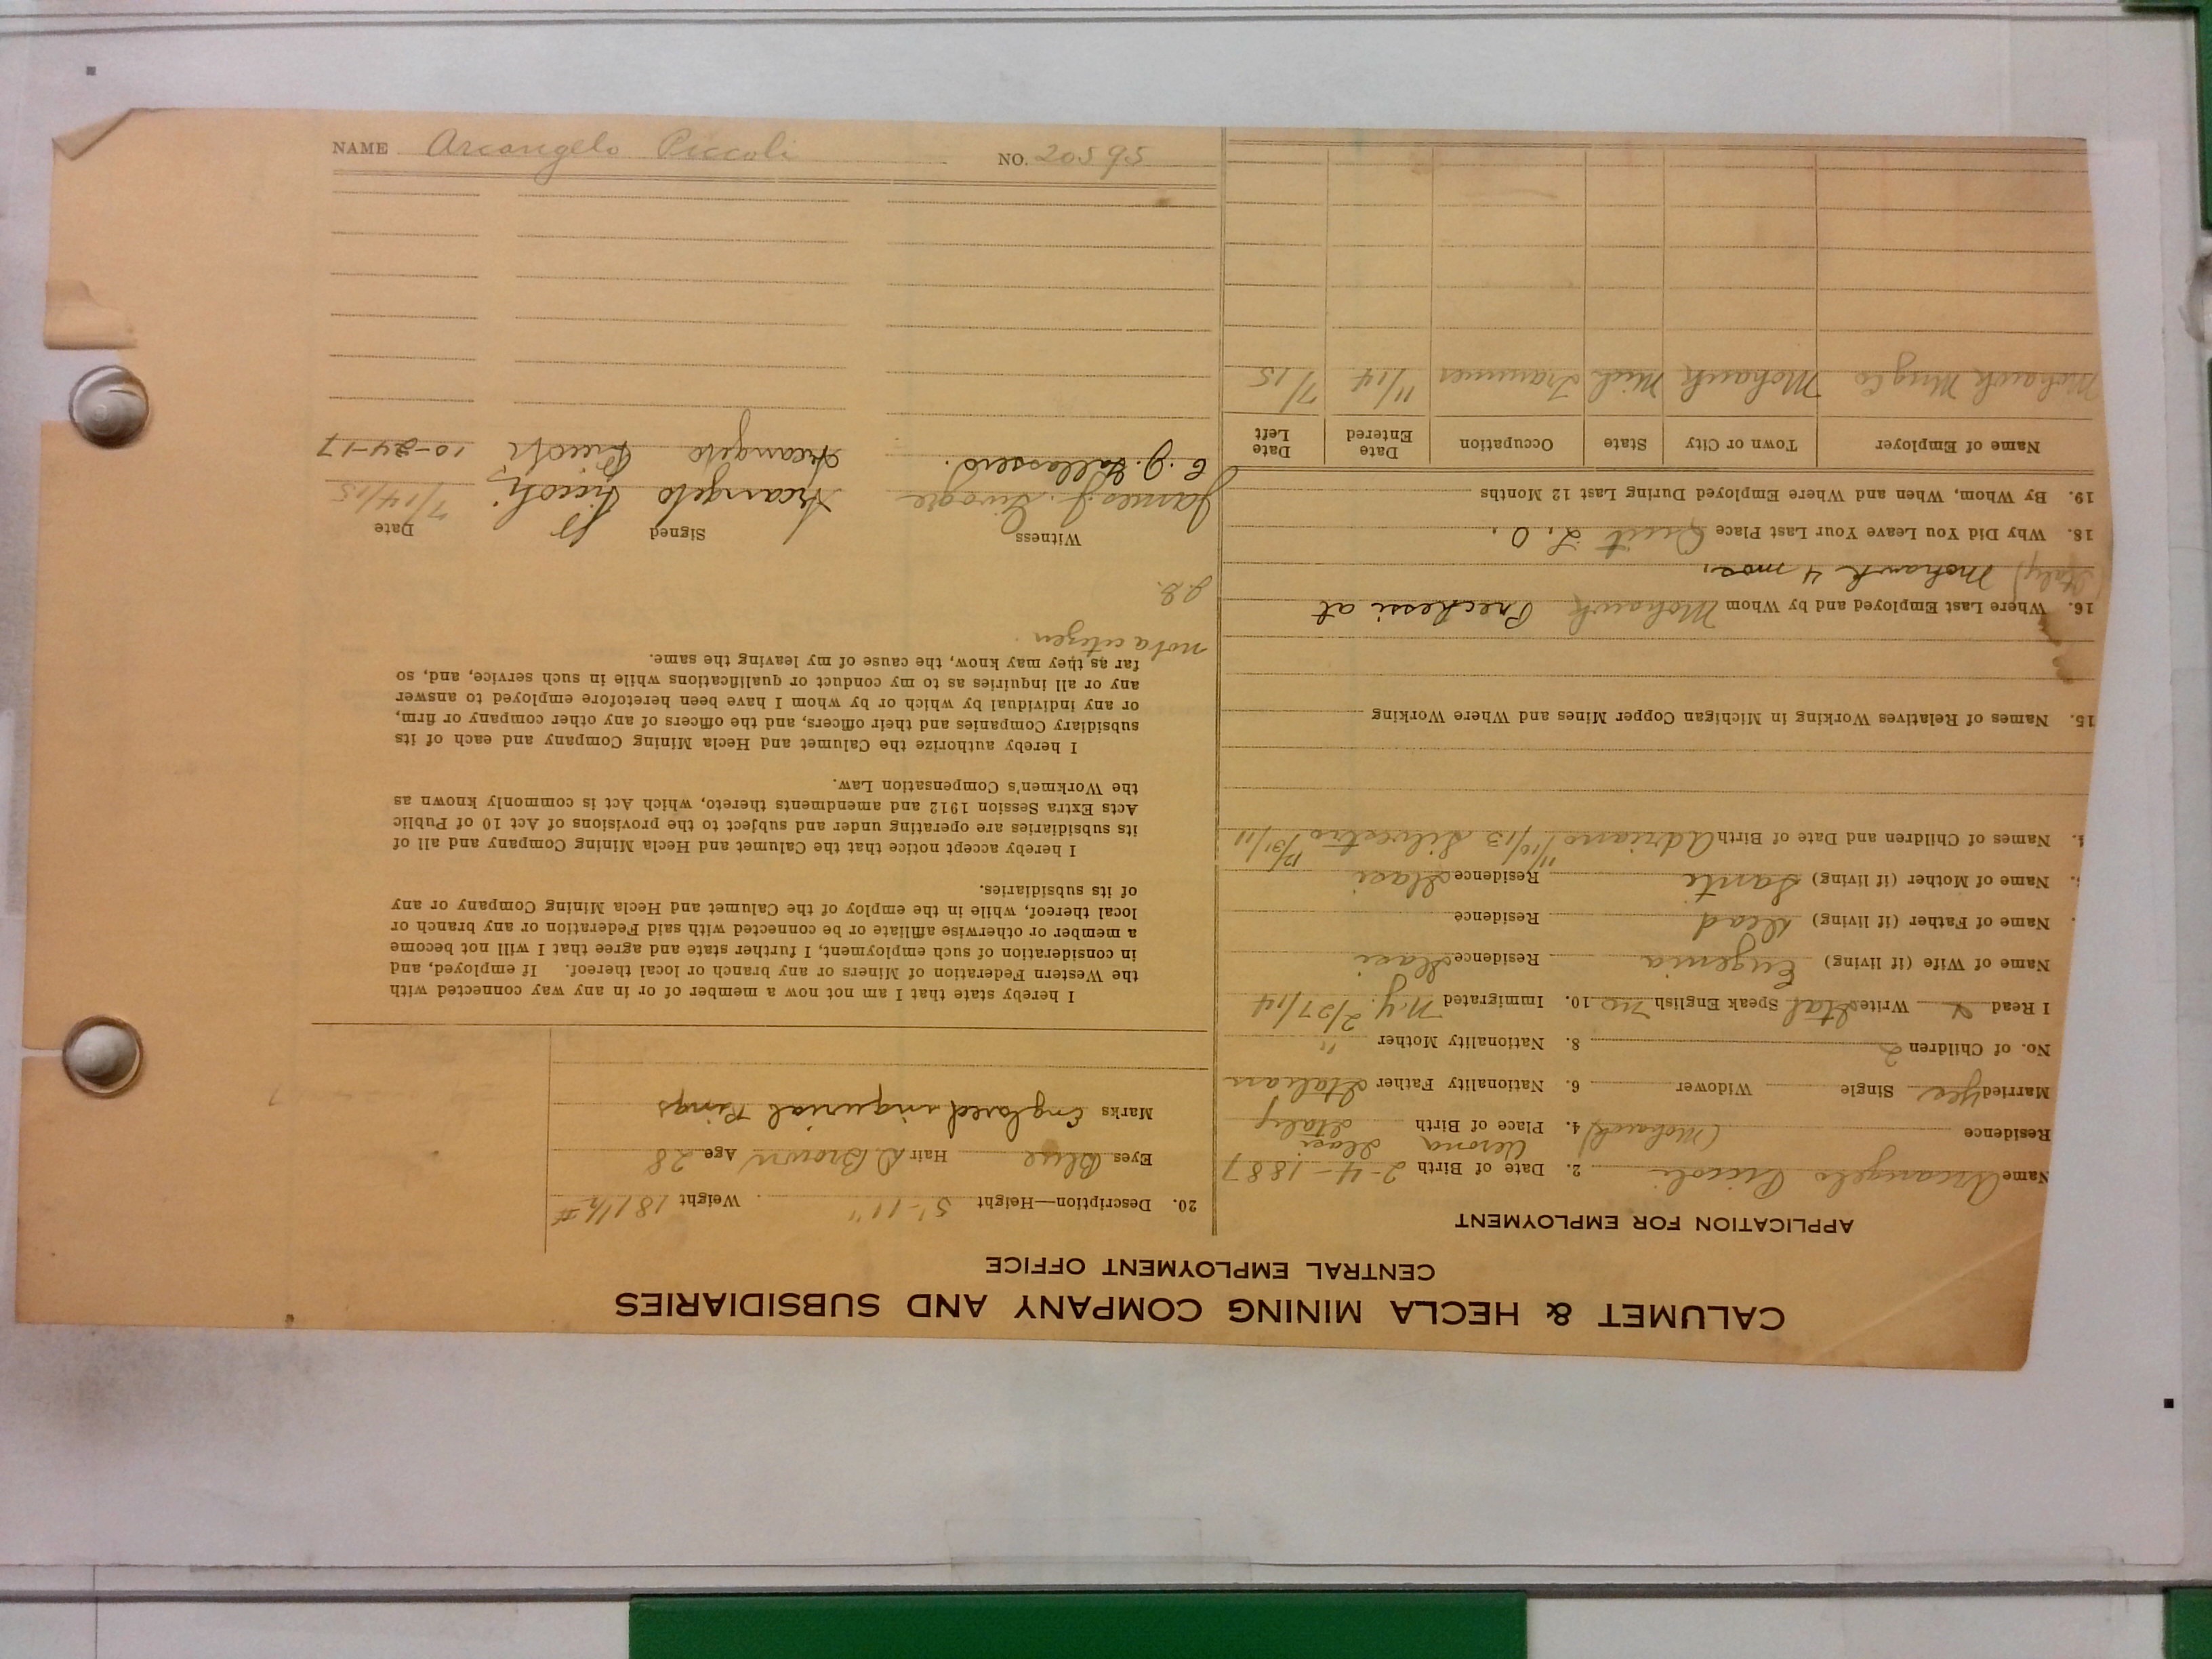 CALUMET & HECLA MINING COMPANY AND SUBSIDIARIES
CENTRAL EMPLOYMENT OFFICE
APPLICATION FOR EMPLOYMENT
Name Arcangelo Piccoli 2. Date of Birth 2-4-1887
Residence (Mohawk) 4. Place of Birth Verona Italy
Married Yes Single Widower 6. Nationality Father Italian
No. of Children 2 8. Nationality Mother "
I Read Write Ital Speak English no 10. Immigrated N.Y. 2/27/14
Name of Wife (if living) Eugenia Residence
Name of Father (if living) dead Residence
Name of Mother (if living) Sante Residence
Names of Children and Date of Birth Adriano 11/10/13 Silvestro 12/31/11
15. Names of Relatives Working in Michigan Copper Mines and Where Working
16. Where Last Employed and by Whom Mohawk at
(Italy) Mohawk 4 mos.
18. Why Did You Leave Your Last Place Quit
19. By Whom, When and Where Employed During Last 12 Months
Name of Employer Town or City State Occupation Date Entered Date Left
Mohawk Mng Co Mohawk Mich Trammer 11/14 7/15
20. Description—Height 5'-11" Weight 181 1/2 #
Eyes Blue Hair D. Brown Age 28
Marks Englared inquinal Rings
I hereby state that I am not now a member of or in any way connected with
the Western Federation of Miners or any branch or local thereof. If employed, and
in consideration of such employment, I further state and agree that I will not become
a member or otherwise affiliate or be connected with said Federation or any branch or
local thereof, while in the employ of the Calumet and Hecla Mining Company or any
of its subsidiaries.
I hereby accept notice that the Calumet and Hecla Mining Company and all of
its subsidiaries are operating under and subject to the provisions of Act 10 of Public
Acts Extra Session 1912 and amendments thereto, which Act is commonly known as
the Workmen's Compensation Law.
I hereby authorize the Calumet and Hecla Mining Company and each of its
subsidiary Companies and their officers, and the officers of any other company or firm,
or any individual by which or by whom I have been heretofore employed to answer
any or all inquiries as to my conduct or qualifications while in such service, and, so
far as they may know, the cause of my leaving the same.
not a citizen.
Witness Signed Date
James J. Arcangelo Piccoli 7/14/15
Arcangelo Piccoli 10-24-17
NAME Arcangelo Piccoli NO. 20595